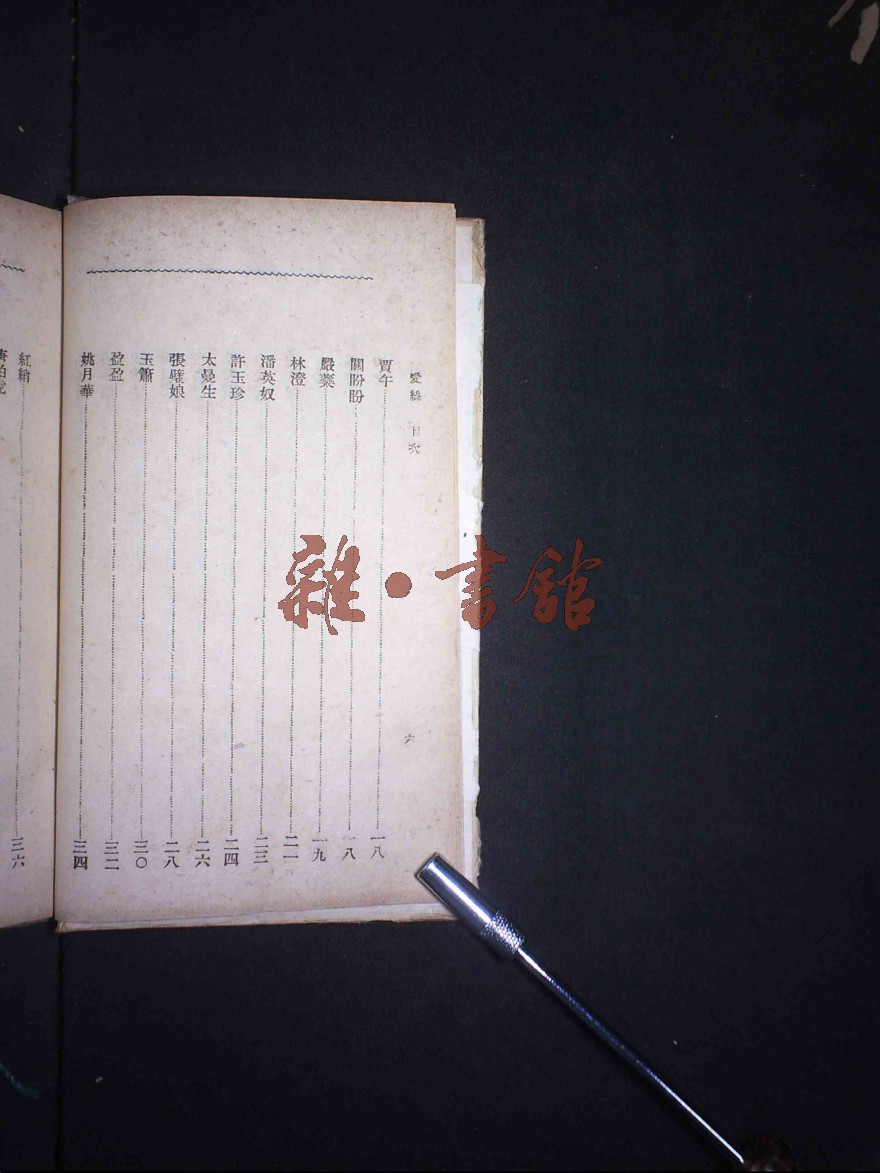 目次
六
賈午……一八
關盼盼……一八
嚴蘂……一九
林澄……二一
潘英奴……二三
許玉珍……二四
太曼生……二六
張璧娘……二八
玉簫……三〇
盈盈……三二
姚月華……三四
紅綃……三六
雜·書館